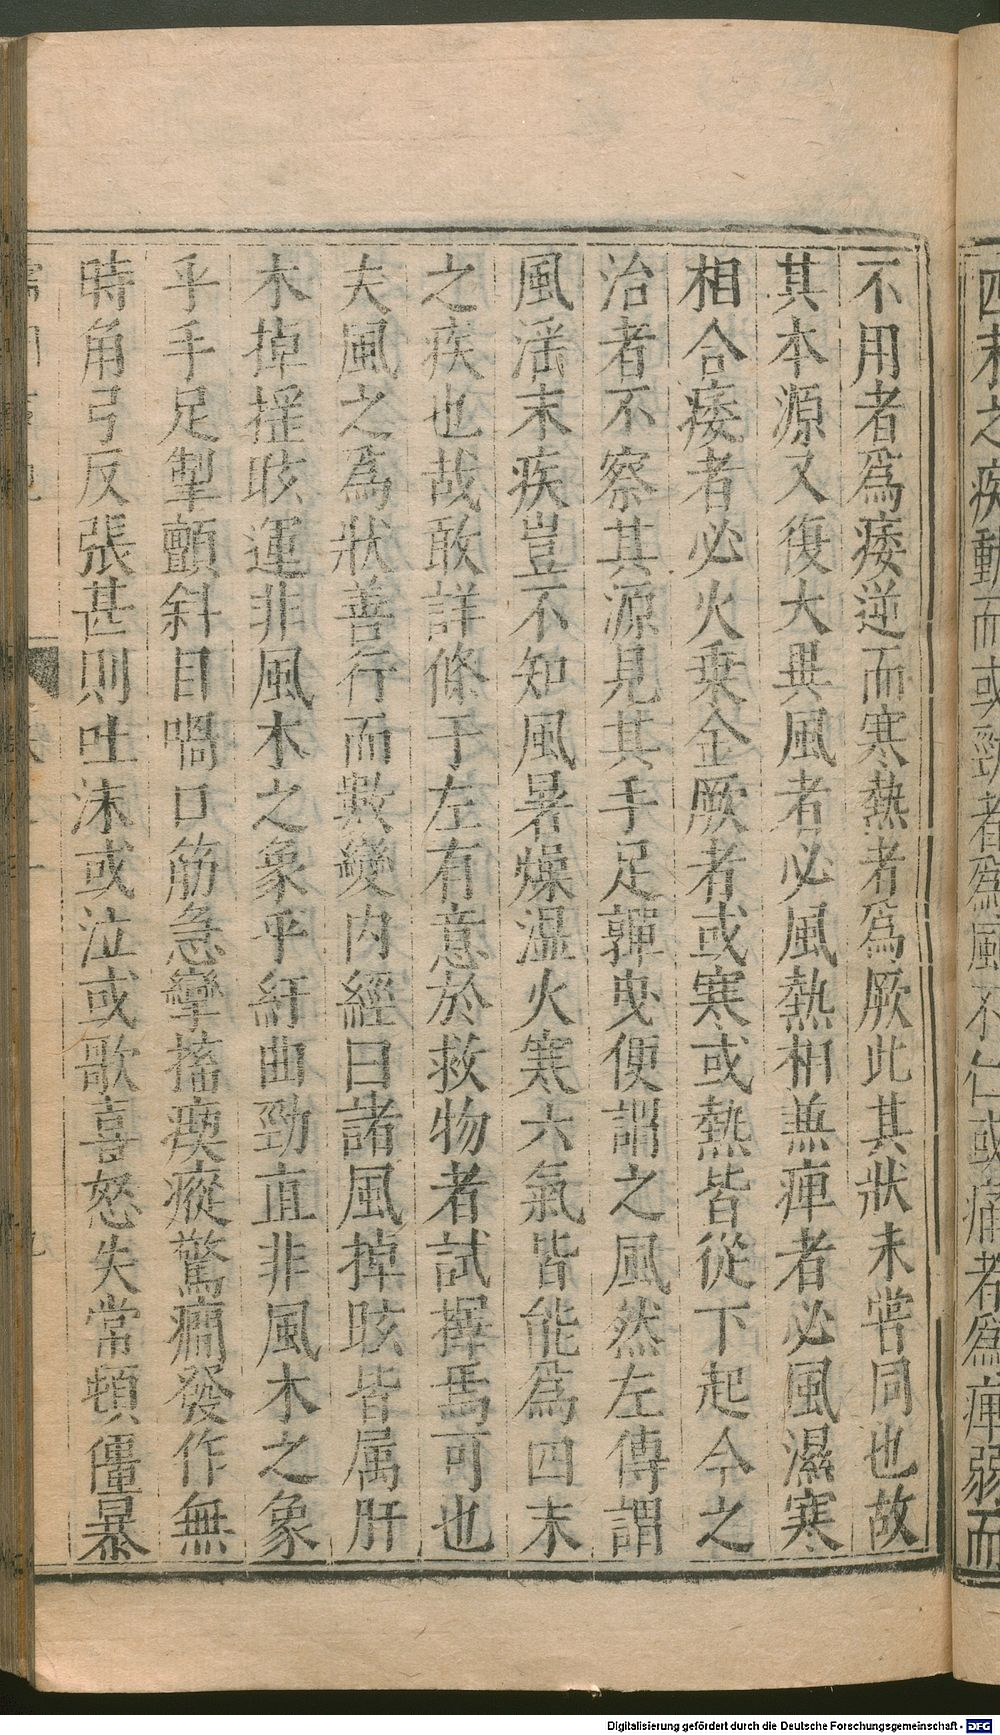 四末之疾動而或勁者爲風不仁或痛者爲痺弱而
不用者爲痿逆而寒熱者爲厥此其狀未嘗同也故
其本源又復大異風者必風熱相兼痺者必風濕寒
相合痿者必火乗金厥者或寒或熱皆從下起今之
治者不察其源見其手足嚲曳便謂之風然左傳謂
風淫末疾豈不知風暑燥濕火寒六氣皆能爲四末
之疾也哉敢詳條于左有意於救物者試擇焉可也
夫風之爲狀善行而數變内經曰諸風掉眩皆属肝
木掉揺眩運非風木之象乎紆曲勁直非風木之象
乎手足掣顫斜目喎口筋急攣搐瘈瘲驚癇發作無
時角弓反張甚則吐沫或泣或歌喜怒失常頓僵暴
Digitalisierung gefördert durch die Deutsche Forschungsgemeinschaft - DFG